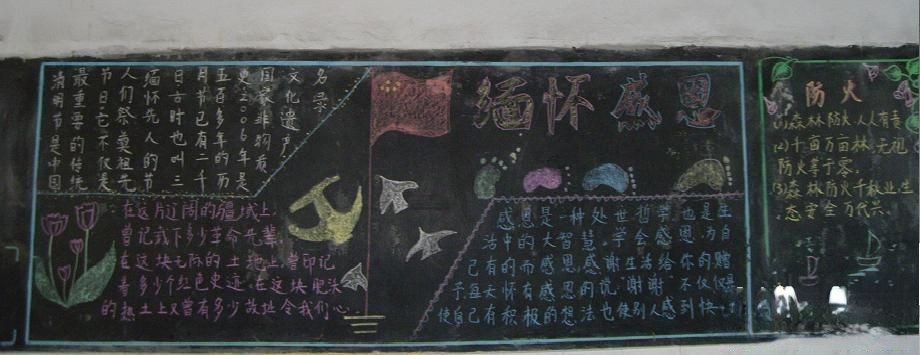 清明节是中国
最重要的传统
节日它不仅是
人们祭奠祖先
缅怀先人的节
日古时也叫三
月节已有二千
五百多年的历
史2006年是
国家非物质
文化遗产
名录
缅怀感恩
在这片辽阔的疆域上,
曾记载下多少革命先辈,
在这块无际的土地上,曾印记
着多少个红色史迹.在这块肥沃
的热土上又曾有多少故址令我们心.
感恩是一种处世哲学,也是生
活中的大智慧.学会感恩,为自
己有的而感恩,感谢生活给你的赠
予.每天怀有感恩的说"谢谢"不仅仅是
使自己有积极的想法也使别人感到快
防火
(1)森林防火人人有责
(2)千亩万亩林,无
防火等于零.
(3)森林防火千秋业,生
态安全万代兴.